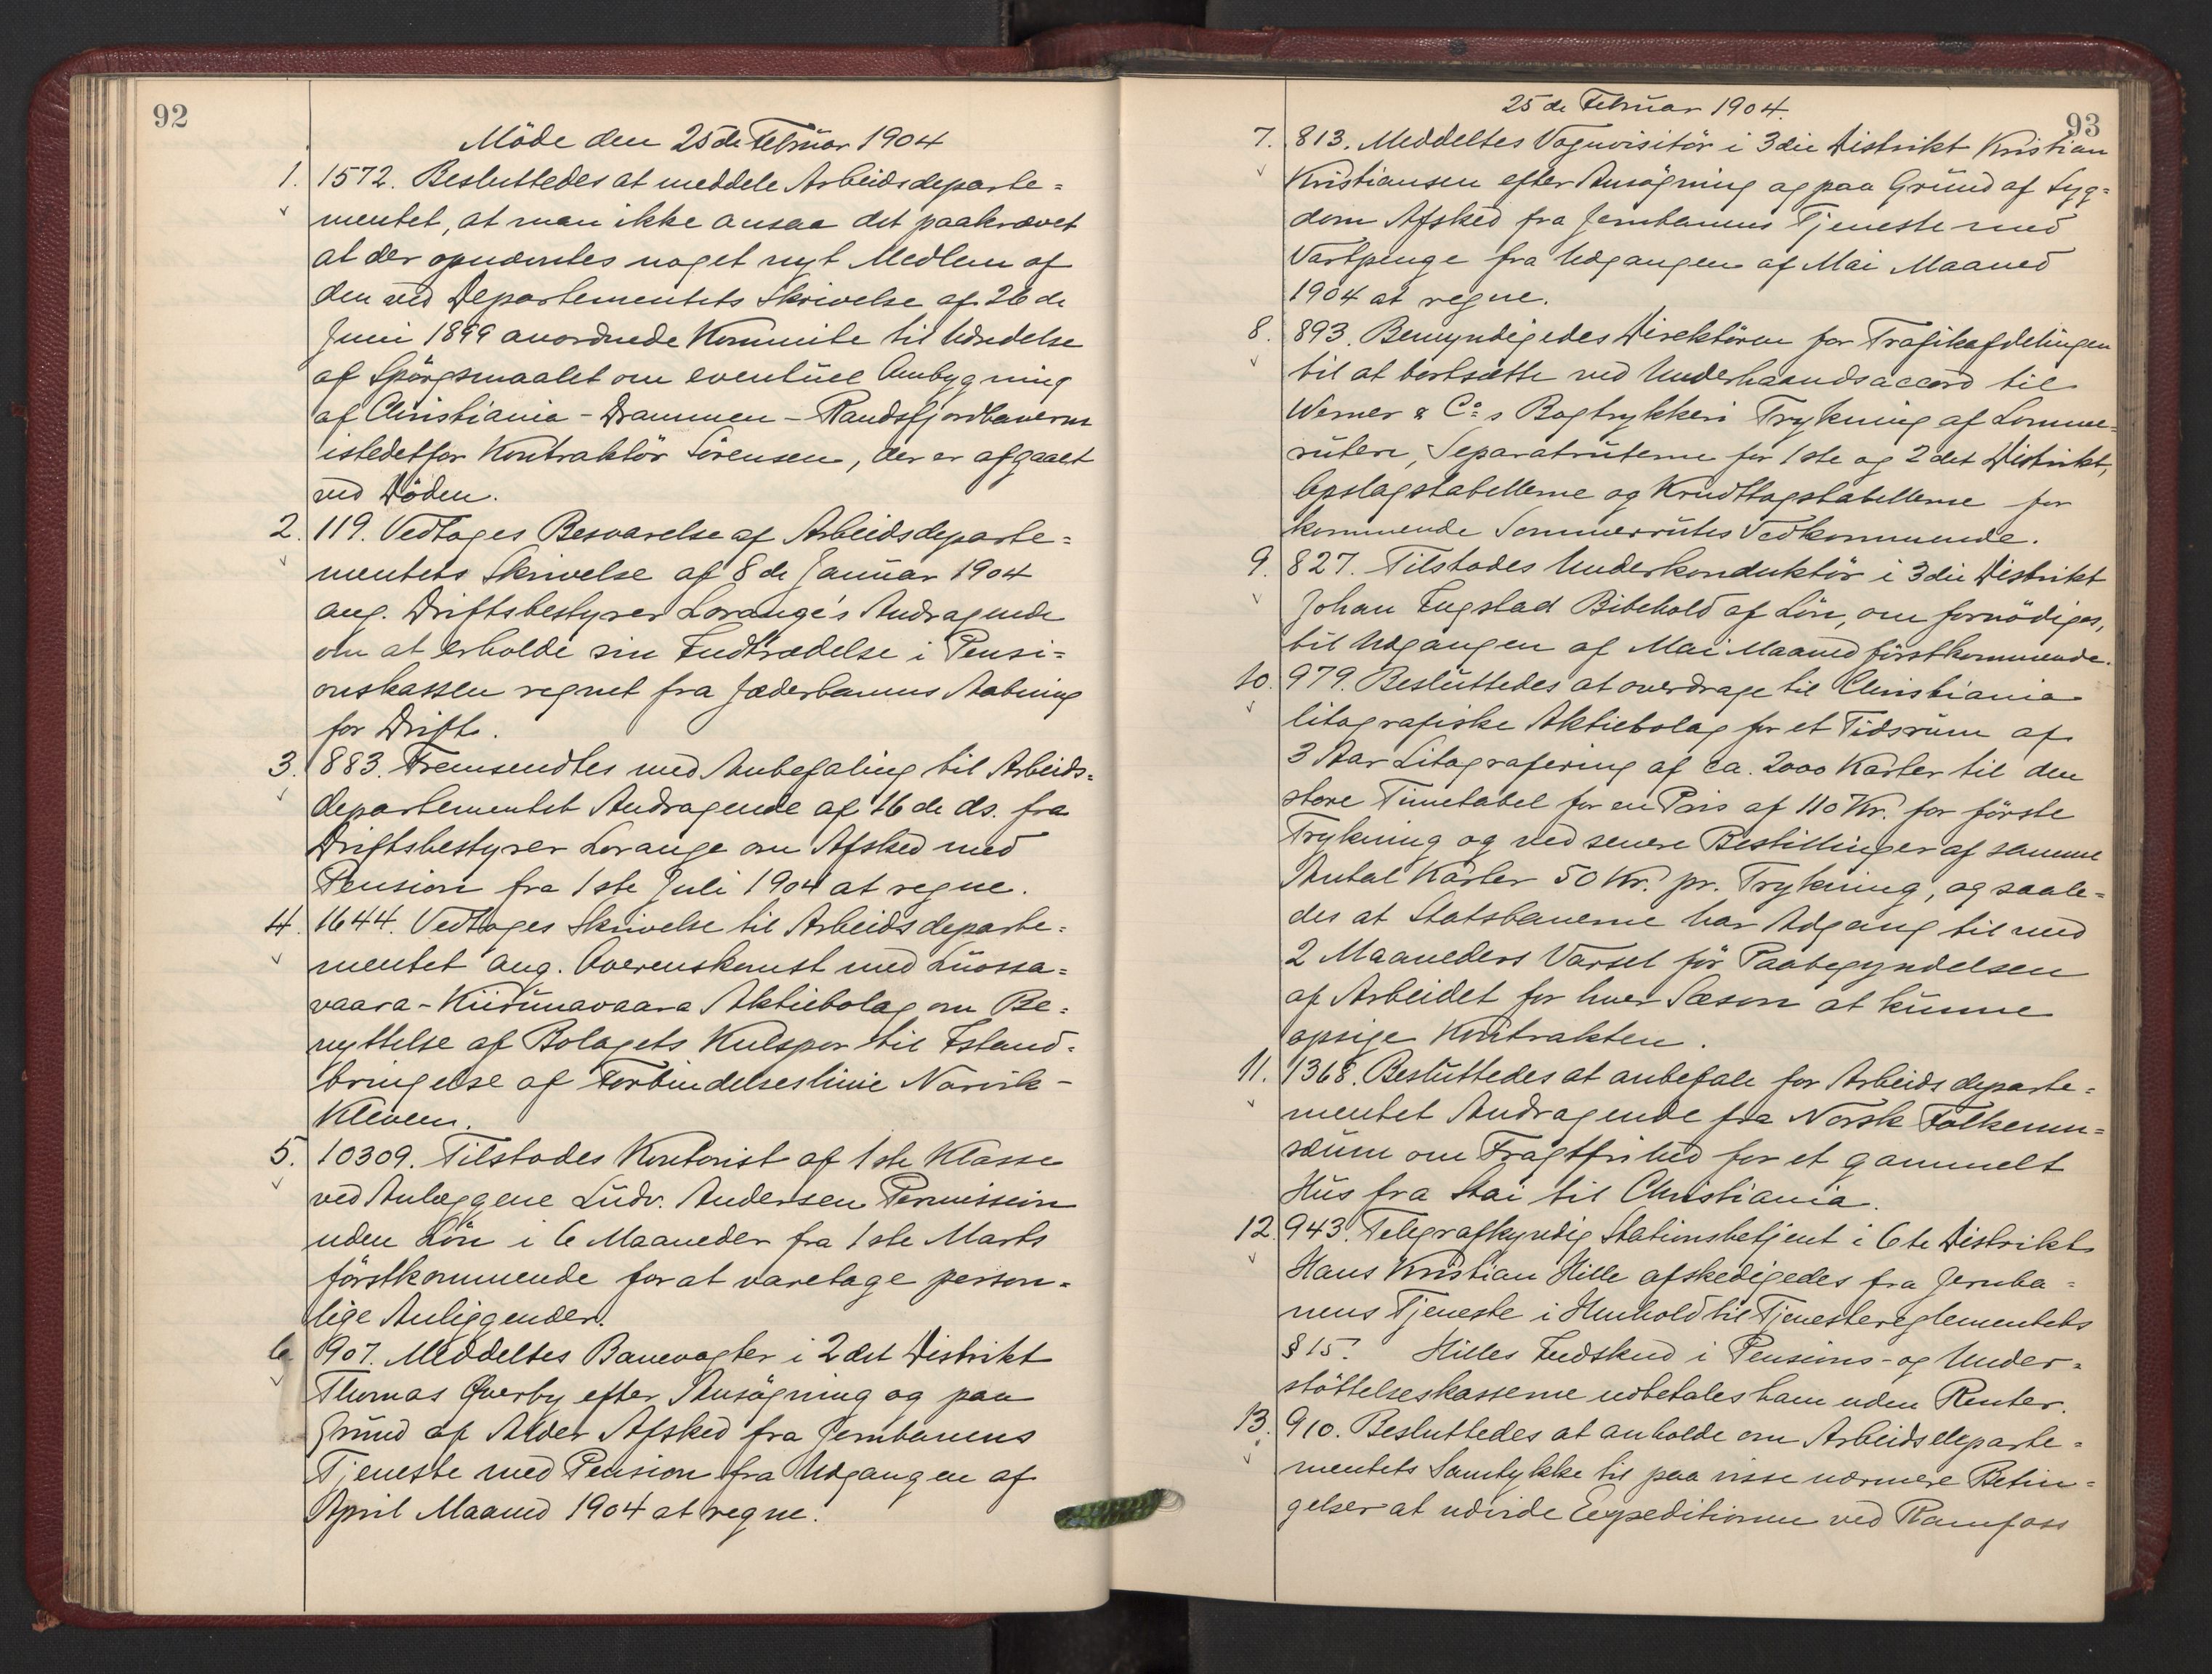 92
Möde den 25de Februar 1904
1. 1572. Besluttedes at meddele Arbeidsdeparte=
mentet, at man ikke ansaa det paakrævet
at der opnævntes noget nyt Medlem af
den ved Departementets Skrivelse af 26de
Juni 1899 anordnede Kommite til Udredelse
af Spörgsmaalet om eventuel Ombygning
af Christiania-Drammen-Randsfjordbanerne
istedetfor Kontraktör Sörensen, der er afgaaet
ved Döden.
2. 119. Vedtoges Besvarelse af Arbeidsdeparte=
mentets Skrivelse af 8de Januar 1904
ang. Driftsbestyrer Lorange's Andragende
om at erholde sin Indtrædelse i Pensi=
onskassen regnet fra Jæderbanens Aabning
for Drift.
3. 883. Fremsendtes med Anbefaling til Arbeids=
departementet Andragende af 16de ds. fra
Driftsbestyrer Lorange om Afsked med
Pension fra 1ste Juli 1904 at regne.
4. 1644. Vedtoges Skrivelse til Arbeidsdeparte=
mentet ang. Overenskomst med Luossa=
vaara-Kiirunavaara Aktiebolag om Be=
nyttelse af Bolagets Kulspor til Istand=
bringelse af Forbindelseslinie Narvik-
Kleven.
5. 10309. Tilstodes Kontorist af 1ste Klasse
ved Anlæggene Ludv. Andersen Permission
uden Lön i 6 Maaneder fra 1ste Marts
förstkommende for at varetage person=
lige Anliggender.
6. 907. Meddeltes Banevogter i 2det Distrikt
Thomas Qverby efter Ansögning og paa
Grund af Alder Afsked fra Jernbanens
Tjeneste med Pension fra Udgangen af
April Maaned 1904 at regne.
25de Februar 1904.
93
7. 813. Meddeltes Vognvisitör i 3die Distrikt Kristian
Kristiansen efter Ansögning og paa Grund af Syg=
dom Afsked fra Jernbanens Tjeneste med
Vartpenge fra Udgangen af Mai Maaned
1904 at regne.
8. 893. Bemyndigedes Direktören for Trafikafdelingen
til at bortsætte ved Underhaandsaccord til
Werner & Co:s Bogtrykkeri Trykning af Lomme=
ruten, Separatruterne for 1ste og 2det Distrikt,
Opslagstabellerne og Krudttogstabellerne for
kommende Sommerrutes Vedkommende.
9. 827. Tilstodes Underkonduktör i 3die Distrikt
Johan Engstad Bibehold af Lön, om fornödiges,
til Udgangen af Mai Maaned förstkommende.
10. 979. Besluttedes at overdrage til Christiania
litografiske Aktiebolag for et Tidsrum af
3 Aar Litografering af ca. 2000 Karter til den
store Timetabel for en Pris af 110 Kr. for förste
Trykning og ved senere Bestillinger af samme
Antal Karter 50 Kr. pr. Trykning, og saale=
des at Statsbanerne har Adgang til med
2 Maaneders Varsel för Paabegyndelsen
af Arbeidet for hver Sæson at kunne
opsige Kontrakten.
11. 1368. Besluttedes at anbefale for Arbeidsdeparte=
mentet Andragende fra Norsk Folkemu=
sæum om Fragtfrihed for et gammelt
Hus fra Stai til Christiania.
12. 943. Telegrafkyndig Stationsbetjent i 6te Distrikt
Hans Kristian Hille afskedigedes fra Jernba=
nens Tjeneste i Henhold til Tjenestereglementets
§ 15. Hilles Indskud i Pensions- og Under=
stöttelseskasserne udbetales ham uden Renter.
13. 910. Besluttedes at anholde om Arbeidsdeparte=
mentets Samtykke til paa visse nærmere Betin=
gelser at udvide Expeditionen ved Ramfoss